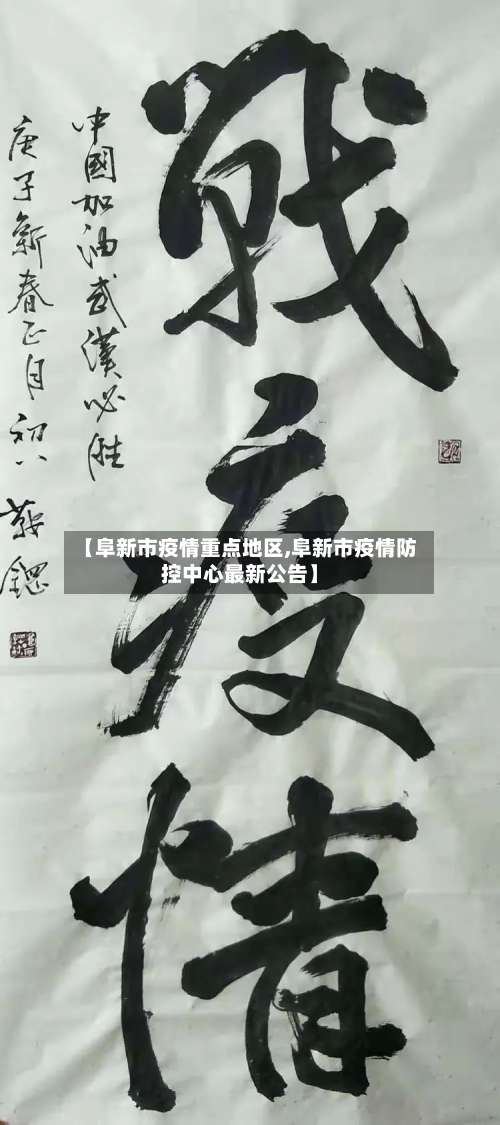 戰疫情
中國加油武漢必胜
庚子新春正月初八
【阜新市疫情重点地区,阜新市疫情防
控中心最新公告】